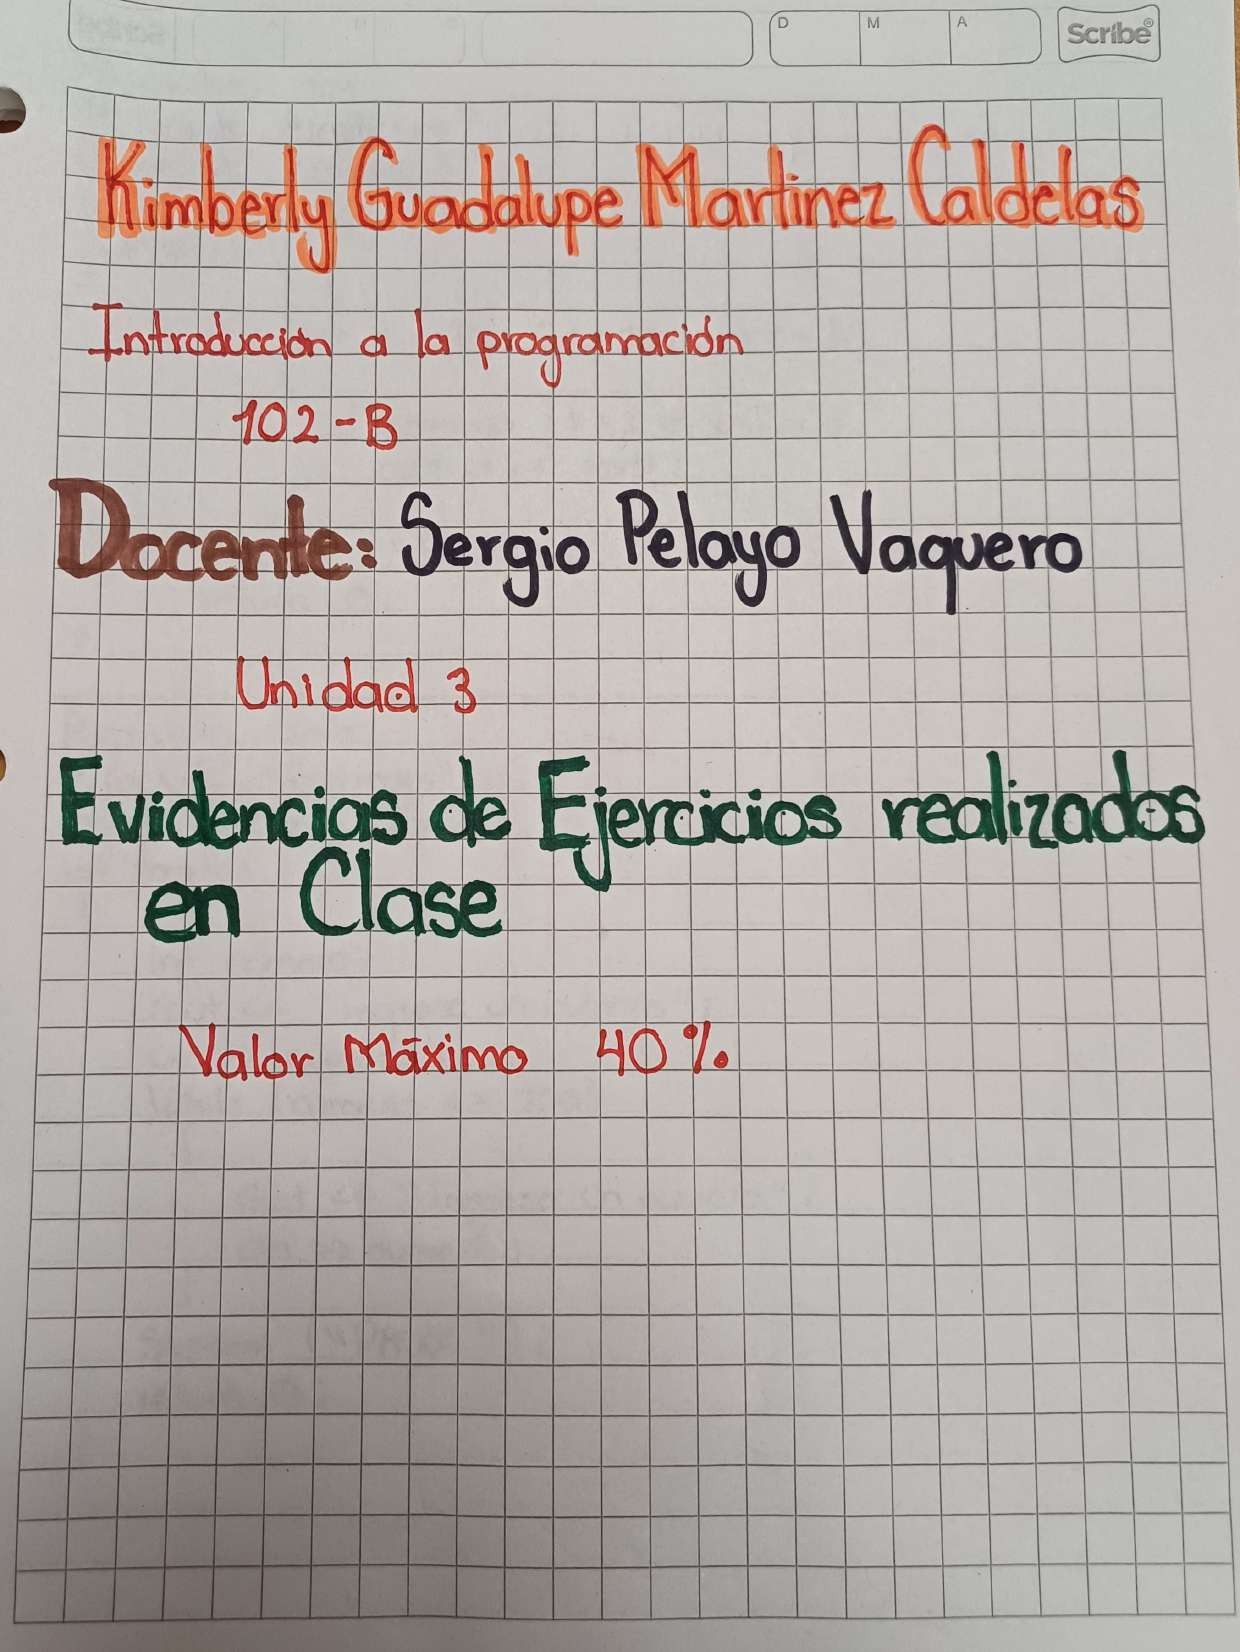 D M A Scribe®
Kimberly Guadalupe Martinez Caldelas
Introducción a la programación
102-B
Docente: Sergio Pelayo Vaquero
Unidad 3
Evidencias de Ejercicios realizados
en Clase
Valor Máximo 40%